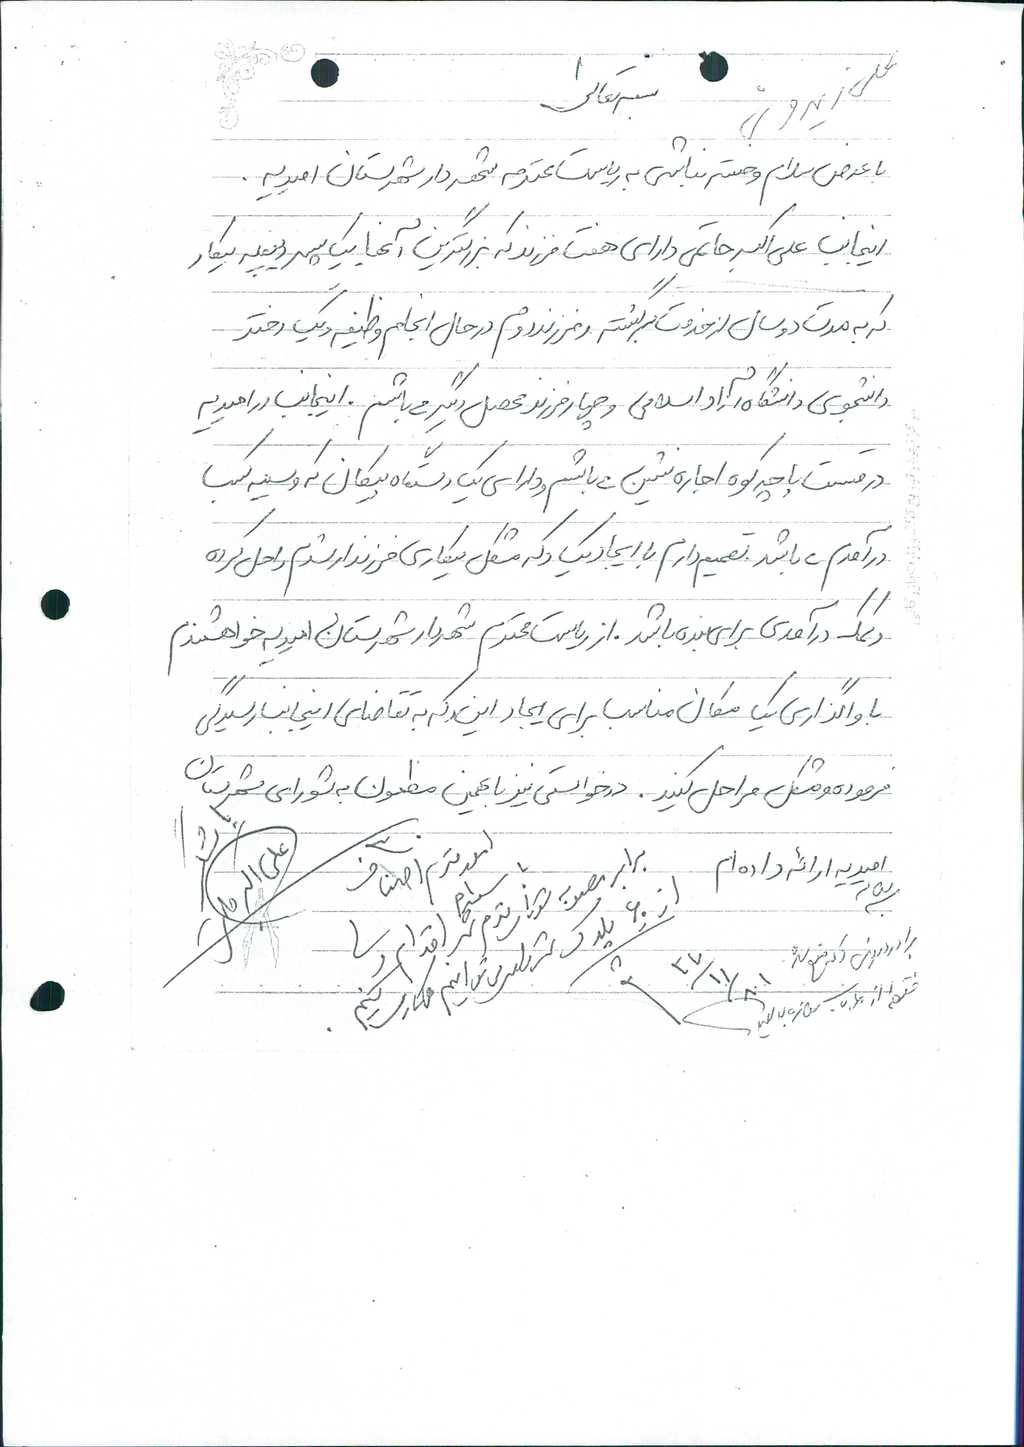 بسمه تعالی
با عرض سلام و خسته نباشی به ریاست محترمه شهردار شهرستان امیدیه .
اینجانب علی اکبر حاتمی دارای هفت فرزند که بزرگترین آنها یک پسر دیپلمه بیکار
که به مدت دو سال از خدمت برگشته و فرزند دوم در حال انجام وظیفه و یک دختر
دانشجوی دانشگاه آزاد اسلامی و چهار فرزند محصل دیگر می باشم . اینجانب در امیدیه
در قسمت پاچه کوه اجاره نشین می باشم و دارای یک دستگاه پیکان که وسیله کسب
درآمدم می باشد . تصمیم دارم با ایجاد یک دکه مشکل بیکاری فرزند ارشدم را حل کرده
و کمک درآمدی برای بنده باشد . از ریاست محترم شهردار شهرستان امیدیه خواهشمندم
با واگذاری یک مکان مناسب برای ایجاد این دکه به تقاضای اینجانب رسیدگی
فرموده و مشکل مرا حل کنید . درخواستی نیز با همین مضمون به شورای شهرستان
امیدیه ارائه داده ام
با تشکر
علی اکبر حاتمی
امور محترم اصناف
با سلام
برابر مصوبه شورای محترم شهر اقدام و
۸۰/۱۱/۲۷